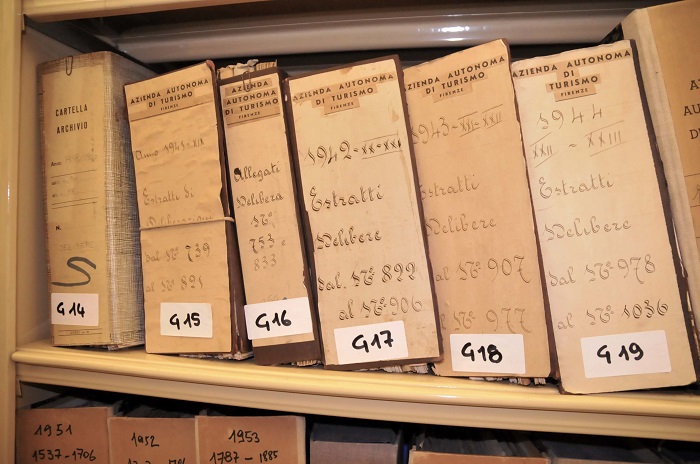 CARTELLA
ARCHIVIO
S
G14
AZIENDA AUTONOMA
DI TURISMO
FIRENZE
Anno 1941-XIX
Estratti di
Deliberazioni
dal Nº 739
al Nº 821
G15
AZIENDA
AUTONOMA
DI TURISMO
FIRENZE
Allegati
Delibera
Nº
753 e
833
G16
AZIENDA AUTONOMA
DI TURISMO
FIRENZE
1942-XX-XXI
Estratti
Delibere
dal Nº 822
al Nº 906
G17
AZIENDA AUTONOMA
DI TURISMO
FIRENZE
1943-XXI-XXII
Estratti
Delibere
dal Nº 907
al Nº 977
G18
AZIENDA AUTONOMA
DI
TURISMO
FIRENZE
1944
XXII - XXIII
Estratti
Delibere
dal Nº 978
al Nº 1036
G19
1951
1537-1706
1952
1953
1787-1885